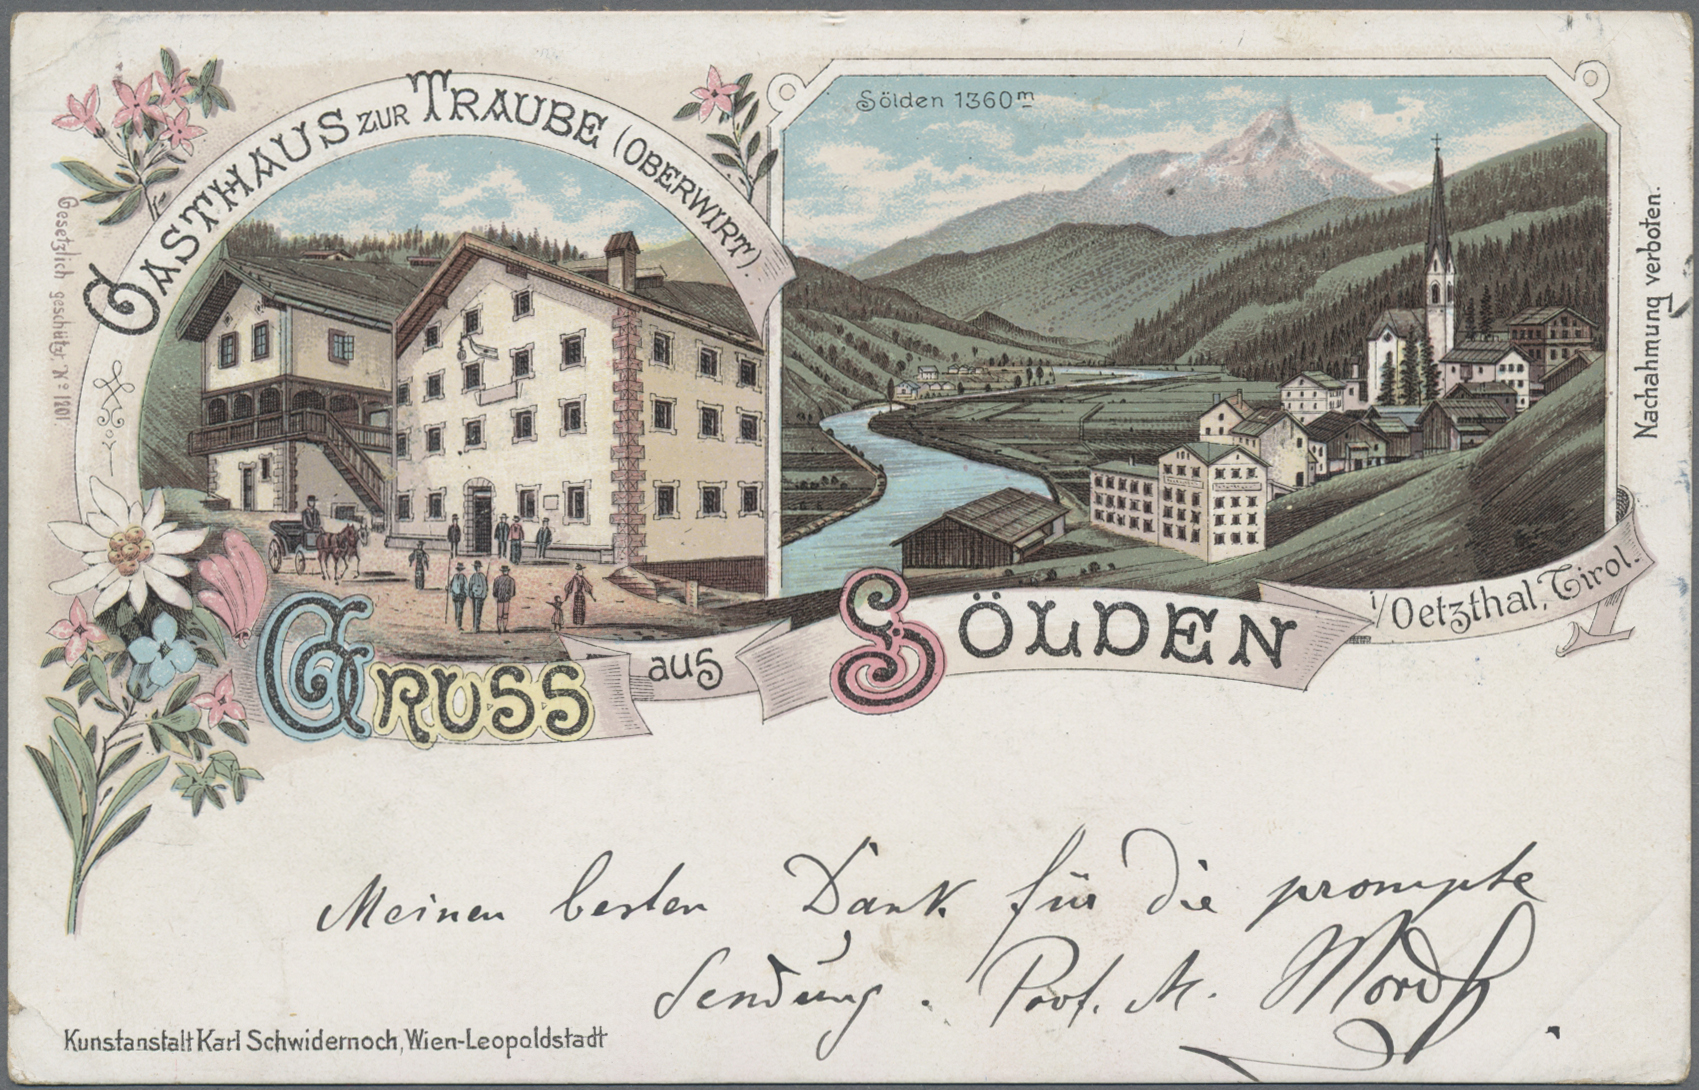 Gasthaus zur Traube (Oberwirt).
Sölden 1360 m
Gesetzlich geschützt No 1201.
Nachahmung verboten.
Gruss aus Sölden i/Oetzthal, Tirol.
Meinen besten Dank für die prompte
Sendung. Prof. M.
Kunstanstalt Karl Schwidernoch, Wien-Leopoldstadt